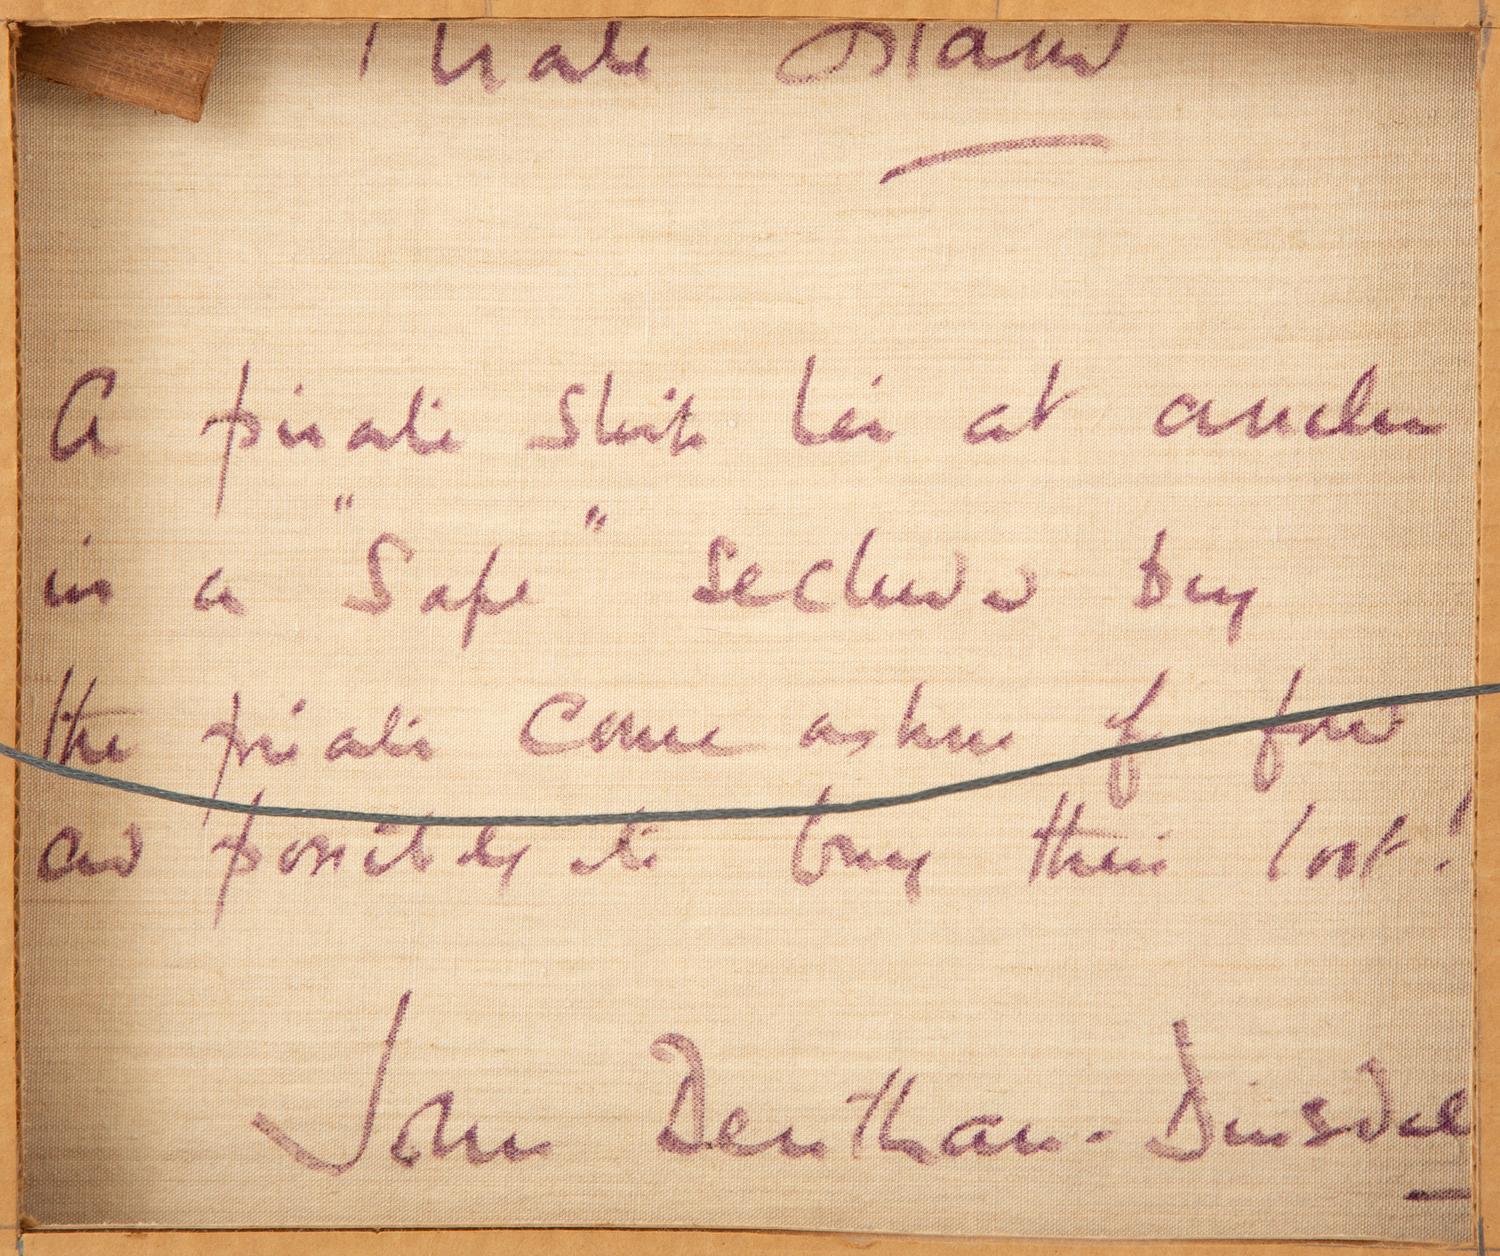 Pirate Island
A pirate ship lies at anchor
in a "Safe" secluded bay
the pirates come ashore for food
and possibly to bury their loot!
John Benthan-Dinsdale